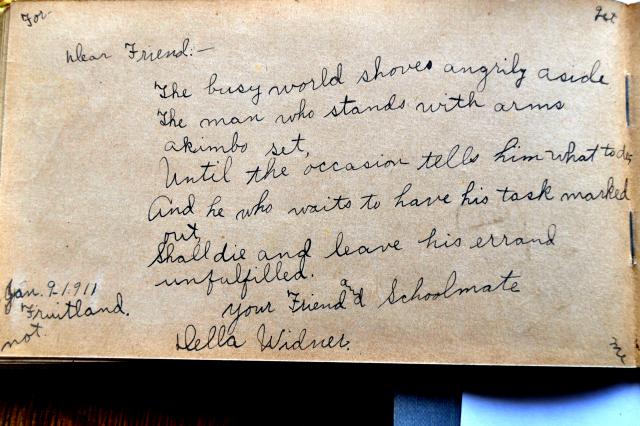 For
get
Dear Friend:-
The busy world shoves angrily aside
The man who stands with arms
akimbo set,
Until the occasion tells him what to do;
And he who waits to have his task marked
out,
Shall die and leave his errand
unfulfilled.
Your Friend and Schoolmate
Della Widner.
Jan. 9-1911
Fruitland.
not.
me